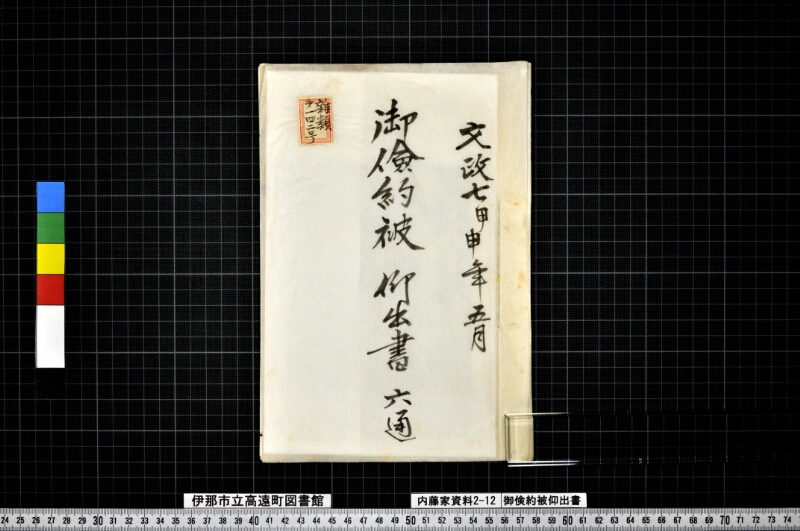 文政七甲申年五月
御儉約被 仰出書 六通
第一四二号
伊那市立高遠町図書館
内藤家資料2-12
御倹約被仰出書
24 25 26 27 28 29 30 31 32 33 34 35 36 37 38 39 40 41 42 43 44 45 46 47 48 49 50 51 52 53 54 55 56 57 58 59 60 61 62 63 64 65 66 67 68 69 70 71 72 73 74